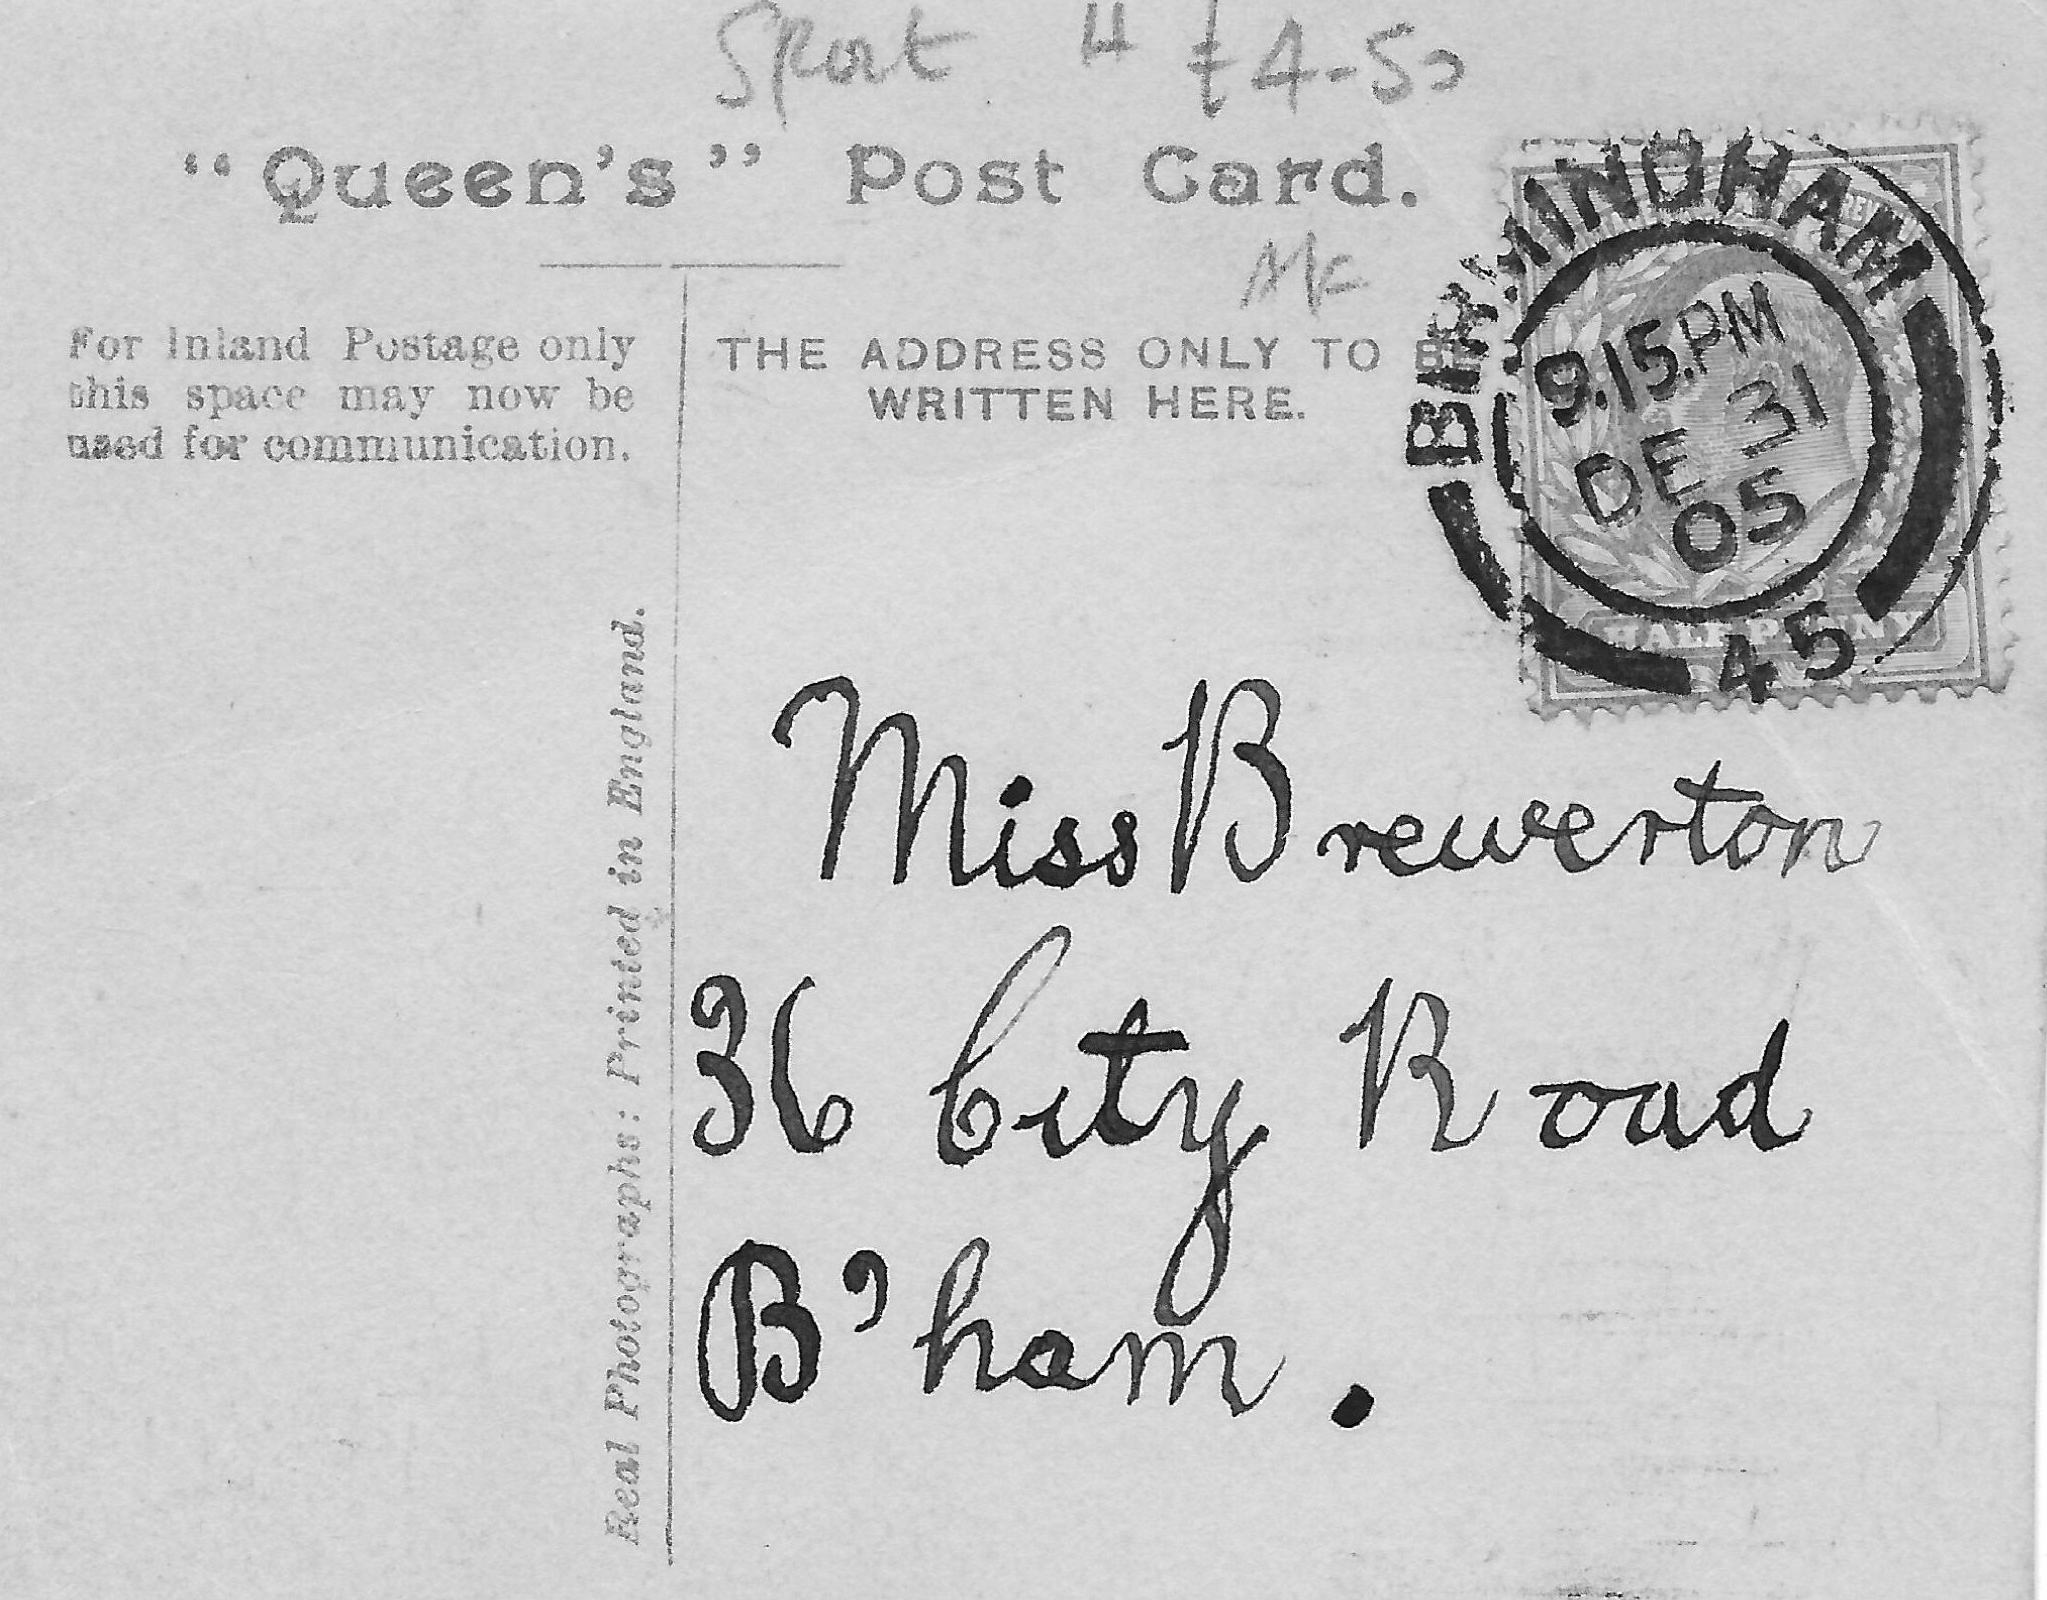 Sport H £4-50
"Queen's" Post Card.
For Inland Postage only
this space may now be
used for communication.
THE ADDRESS ONLY TO BE
WRITTEN HERE.
BIRMINGHAM
9.15.PM
DE 31
05
45
HALFPENNY
Real Photographs: Printed in England.
Miss Brewerton
36 City Road
B'ham.